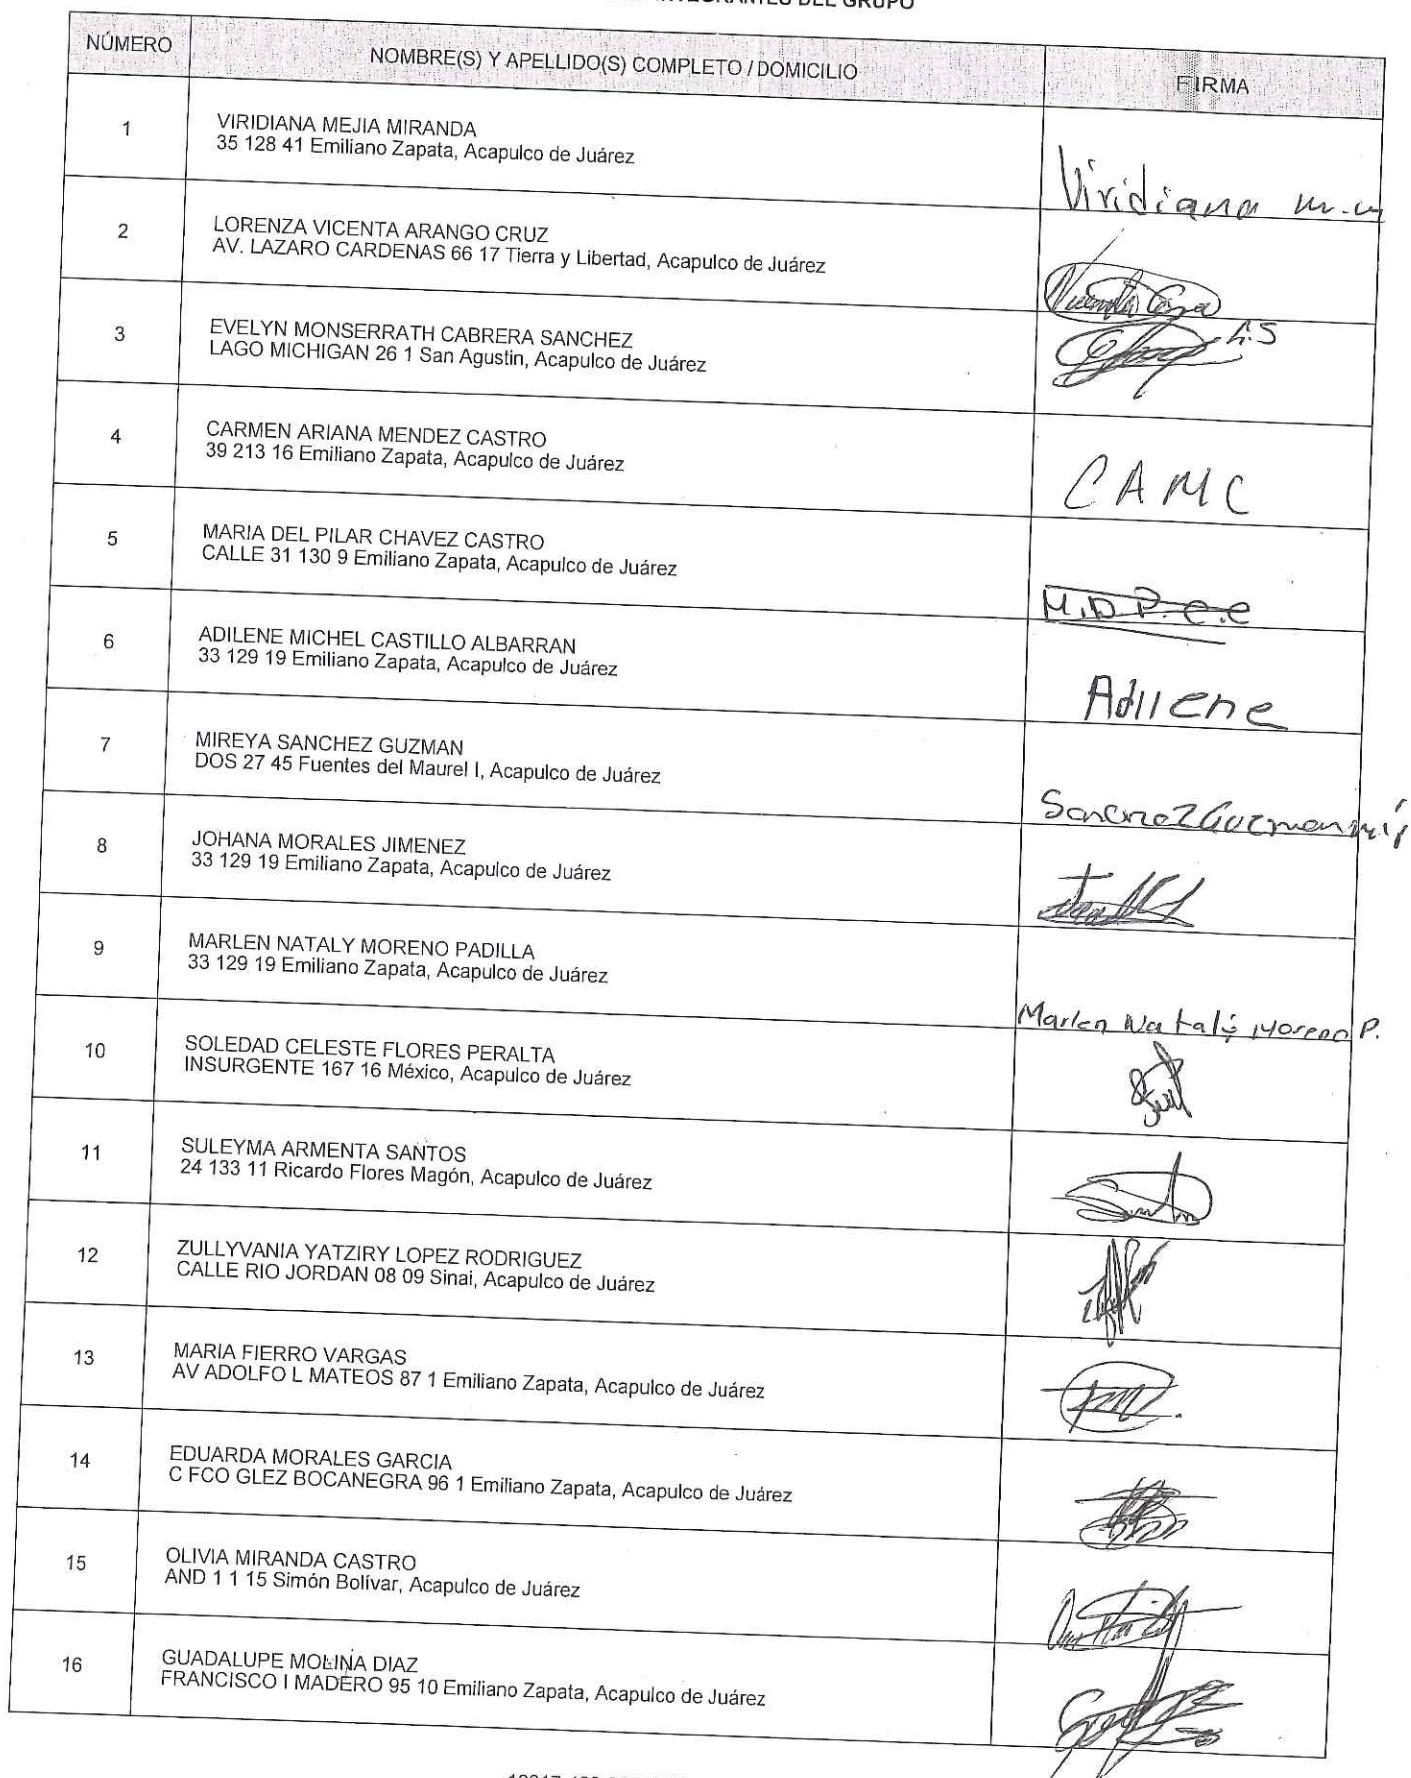 INTEGRANTES DEL GRUPO
NÚMERO NOMBRE(S) Y APELLIDO(S) COMPLETO / DOMICILIO FIRMA
1 VIRIDIANA MEJIA MIRANDA
35 128 41 Emiliano Zapata, Acapulco de Juárez
Viridiana m.m
2 LORENZA VICENTA ARANGO CRUZ
AV. LAZARO CARDENAS 66 17 Tierra y Libertad, Acapulco de Juárez
3 EVELYN MONSERRATH CABRERA SANCHEZ
LAGO MICHIGAN 26 1 San Agustin, Acapulco de Juárez
4 CARMEN ARIANA MENDEZ CASTRO
39 213 16 Emiliano Zapata, Acapulco de Juárez
CAMC
5 MARIA DEL PILAR CHAVEZ CASTRO
CALLE 31 130 9 Emiliano Zapata, Acapulco de Juárez
M.D P.c.c
6 ADILENE MICHEL CASTILLO ALBARRAN
33 129 19 Emiliano Zapata, Acapulco de Juárez
Adilene
7 MIREYA SANCHEZ GUZMAN
DOS 27 45 Fuentes del Maurel I, Acapulco de Juárez
Sanchez Guzman
8 JOHANA MORALES JIMENEZ
33 129 19 Emiliano Zapata, Acapulco de Juárez
9 MARLEN NATALY MORENO PADILLA
33 129 19 Emiliano Zapata, Acapulco de Juárez
Marlen Nataly Moreno P.
10 SOLEDAD CELESTE FLORES PERALTA
INSURGENTE 167 16 México, Acapulco de Juárez
11 SULEYMA ARMENTA SANTOS
24 133 11 Ricardo Flores Magón, Acapulco de Juárez
12 ZULLYVANIA YATZIRY LOPEZ RODRIGUEZ
CALLE RIO JORDAN 08 09 Sinai, Acapulco de Juárez
13 MARIA FIERRO VARGAS
AV ADOLFO L MATEOS 87 1 Emiliano Zapata, Acapulco de Juárez
14 EDUARDA MORALES GARCIA
C FCO GLEZ BOCANEGRA 96 1 Emiliano Zapata, Acapulco de Juárez
15 OLIVIA MIRANDA CASTRO
AND 1 1 15 Simón Bolívar, Acapulco de Juárez
16 GUADALUPE MOLINA DIAZ
FRANCISCO I MADERO 95 10 Emiliano Zapata, Acapulco de Juárez